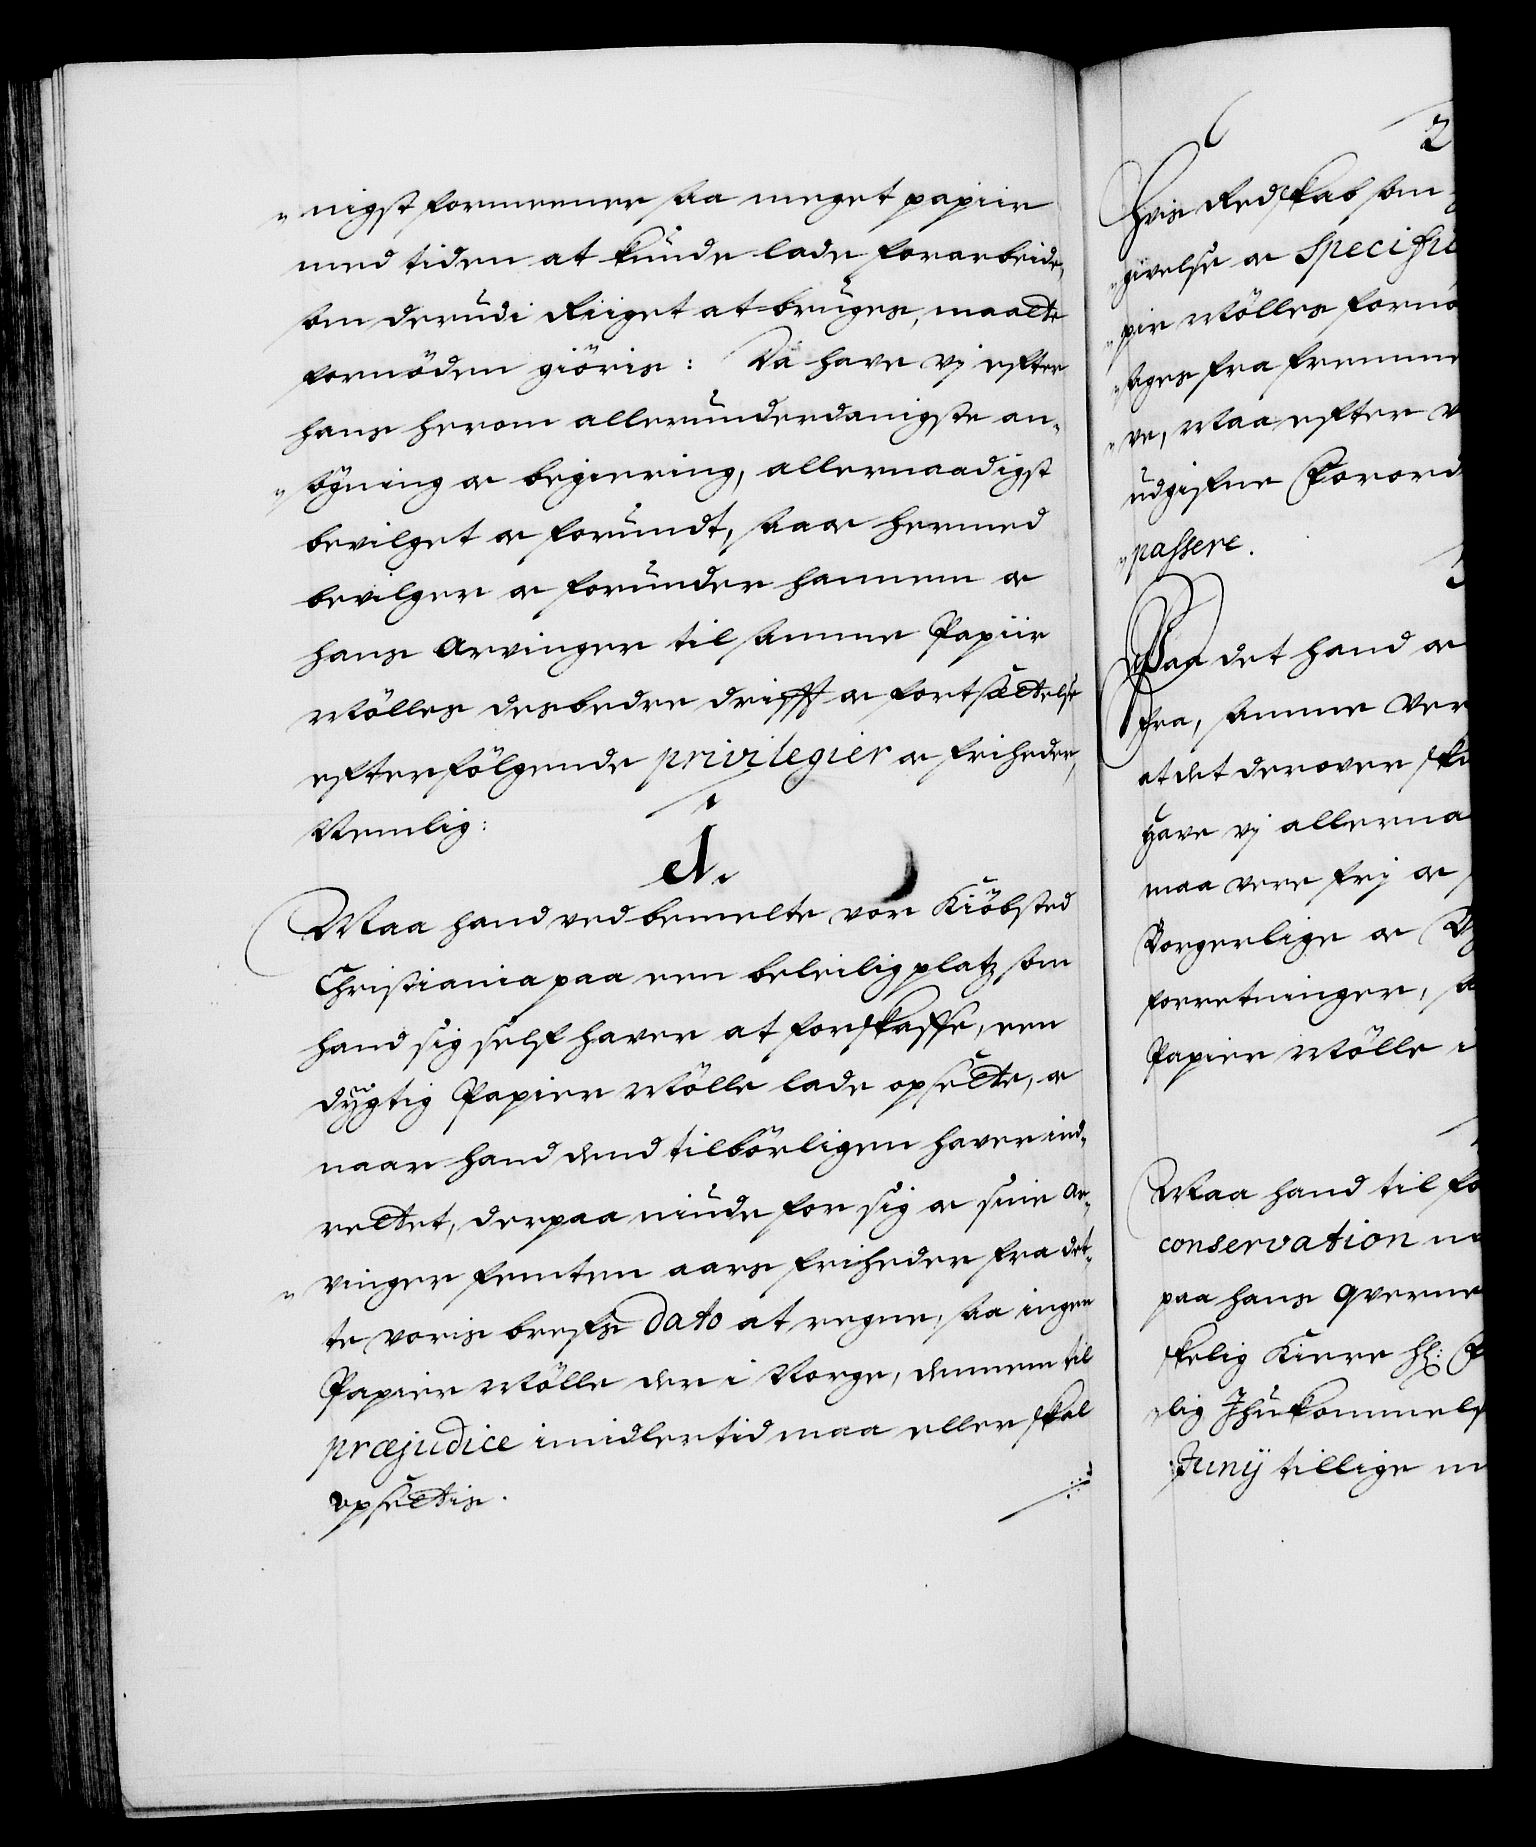 "nigst formeener saa meget papiir
med tiden at kunde lade forarbeide,
som derudi Riiget at bruges, maatte
fornöden giöris: Da have vj efter
hans herom allerunderdanigste an-
"sögning oc begiering, allernaadigst
bevilget oc forundt, saa oc hermed
bevilger oc forunder hannem oc
hans Arvinger til samme Papiir
Mölles desbedre drifft oc fortsættelse
efterfölgende privilegier oc friheder,
Nemlig:
1.
Maa hand ved bemelte vor Kiöbsted
Christiania paa een beleilig platz som
hand sig self haver at forskaffe, een
dygtig Papiir Mölle lade opsette, oc
naar hand dend tilbörligen haver ind-
rettet, derpaa niude for sig oc sine Ar-
"vinger femten aars friheder fra det-
te voris brefs Dato at regne, saa ingen
Papiir Mölle der i Norge, dennem til
præjudice imidlertid maa eller skal
opsettis.
2
Hvis Redskab som
"givelse oc Specifi
"pir Mölles fornö
"tages fra fremme
"ve, Maa efter v
udgifne Forord
"passere.
3
Paa det hand oc
fra, samme Ver
at det derover ska
Have vj allerna
maa vere frj oc
Borgerlige oc By
forretninger, sa
Papiir Mölle i
Maa hand til fo
conservation
paa hans qverne
skelig Kiere Hl: F
lig Ihukommels
Junij tillige m